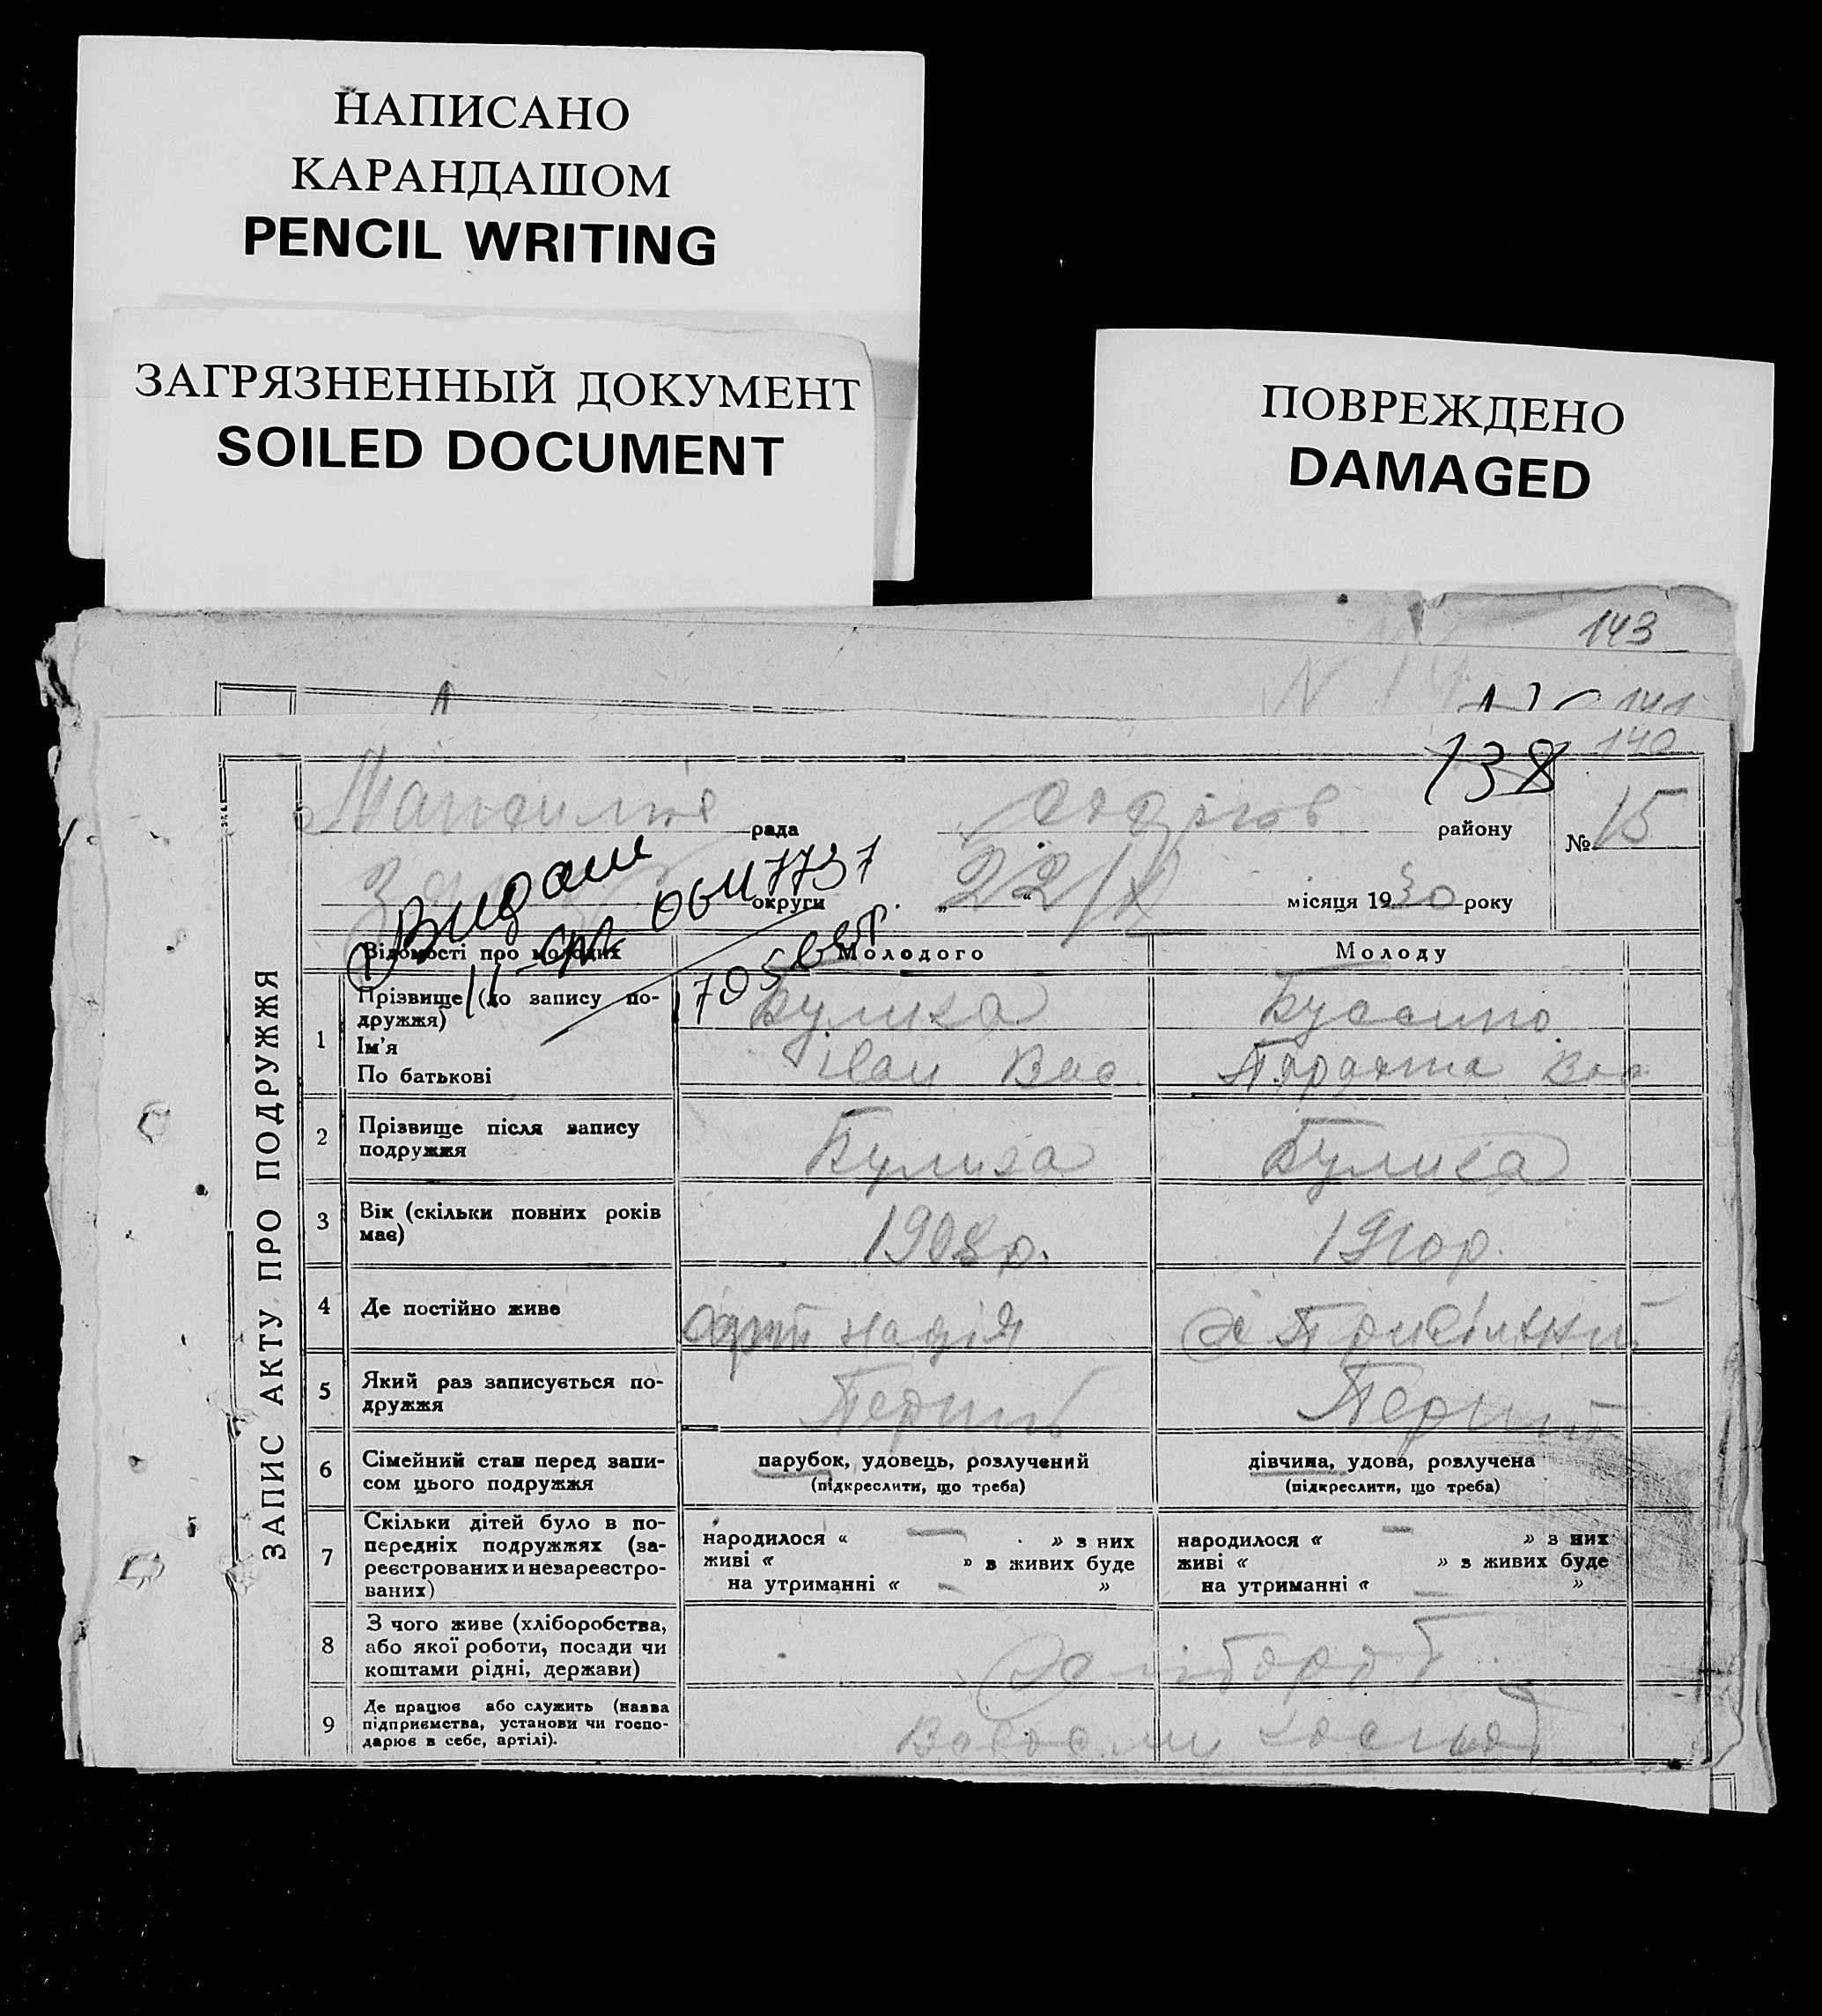 НАПИСАНО
КАРАНДАШОМ
PENCIL WRITING
ЗАГРЯЗНЕННЫЙ ДОКУМЕНТ
SOILED DOCUMENT
ПОВРЕЖДЕНО
DAMAGED
143
141
140
138
ЗАПИС АКТУ ПРО ПОДРУЖЖЯ
рада
району
№ 15
округи
„ 22/X “ місяця 1930 року
Видани
Відомості про молодих
Молодого
Молоду
1
Прізвище (до запису по-
дружжя)
Ім'я
По батькові
Булига
Іван Вас
Вас
2
Прізвище після запису
подружжя
Булига
Булига
3
Вік (скільки повних років
має)
1908 р.
1910 р.
4
Де постійно живе
надія
5
Який раз записується по-
дружжя
Перший
Перший
6
Сімейний стан перед запи-
сом цього подружжя
парубок, удовець, розлучений
(підкреслити, що треба)
дівчина, удова, розлучена
(підкреслити, що треба)
7
Скільки дітей було в по-
передніх подружжях (за-
реєстрованих и незареєстро-
ваних)
народилося « — » з них
живі « » з живих буде
на утриманні « - »
народилося « — » з них
живі « » з живих буде
на утриманні « - »
8
З чого живе (хліборобства,
або якої роботи, посади чи
коштами рідні, держави)
9
Де працює або служить (назва
підприємства, установи чи госпо-
дарює в себе, артілі).